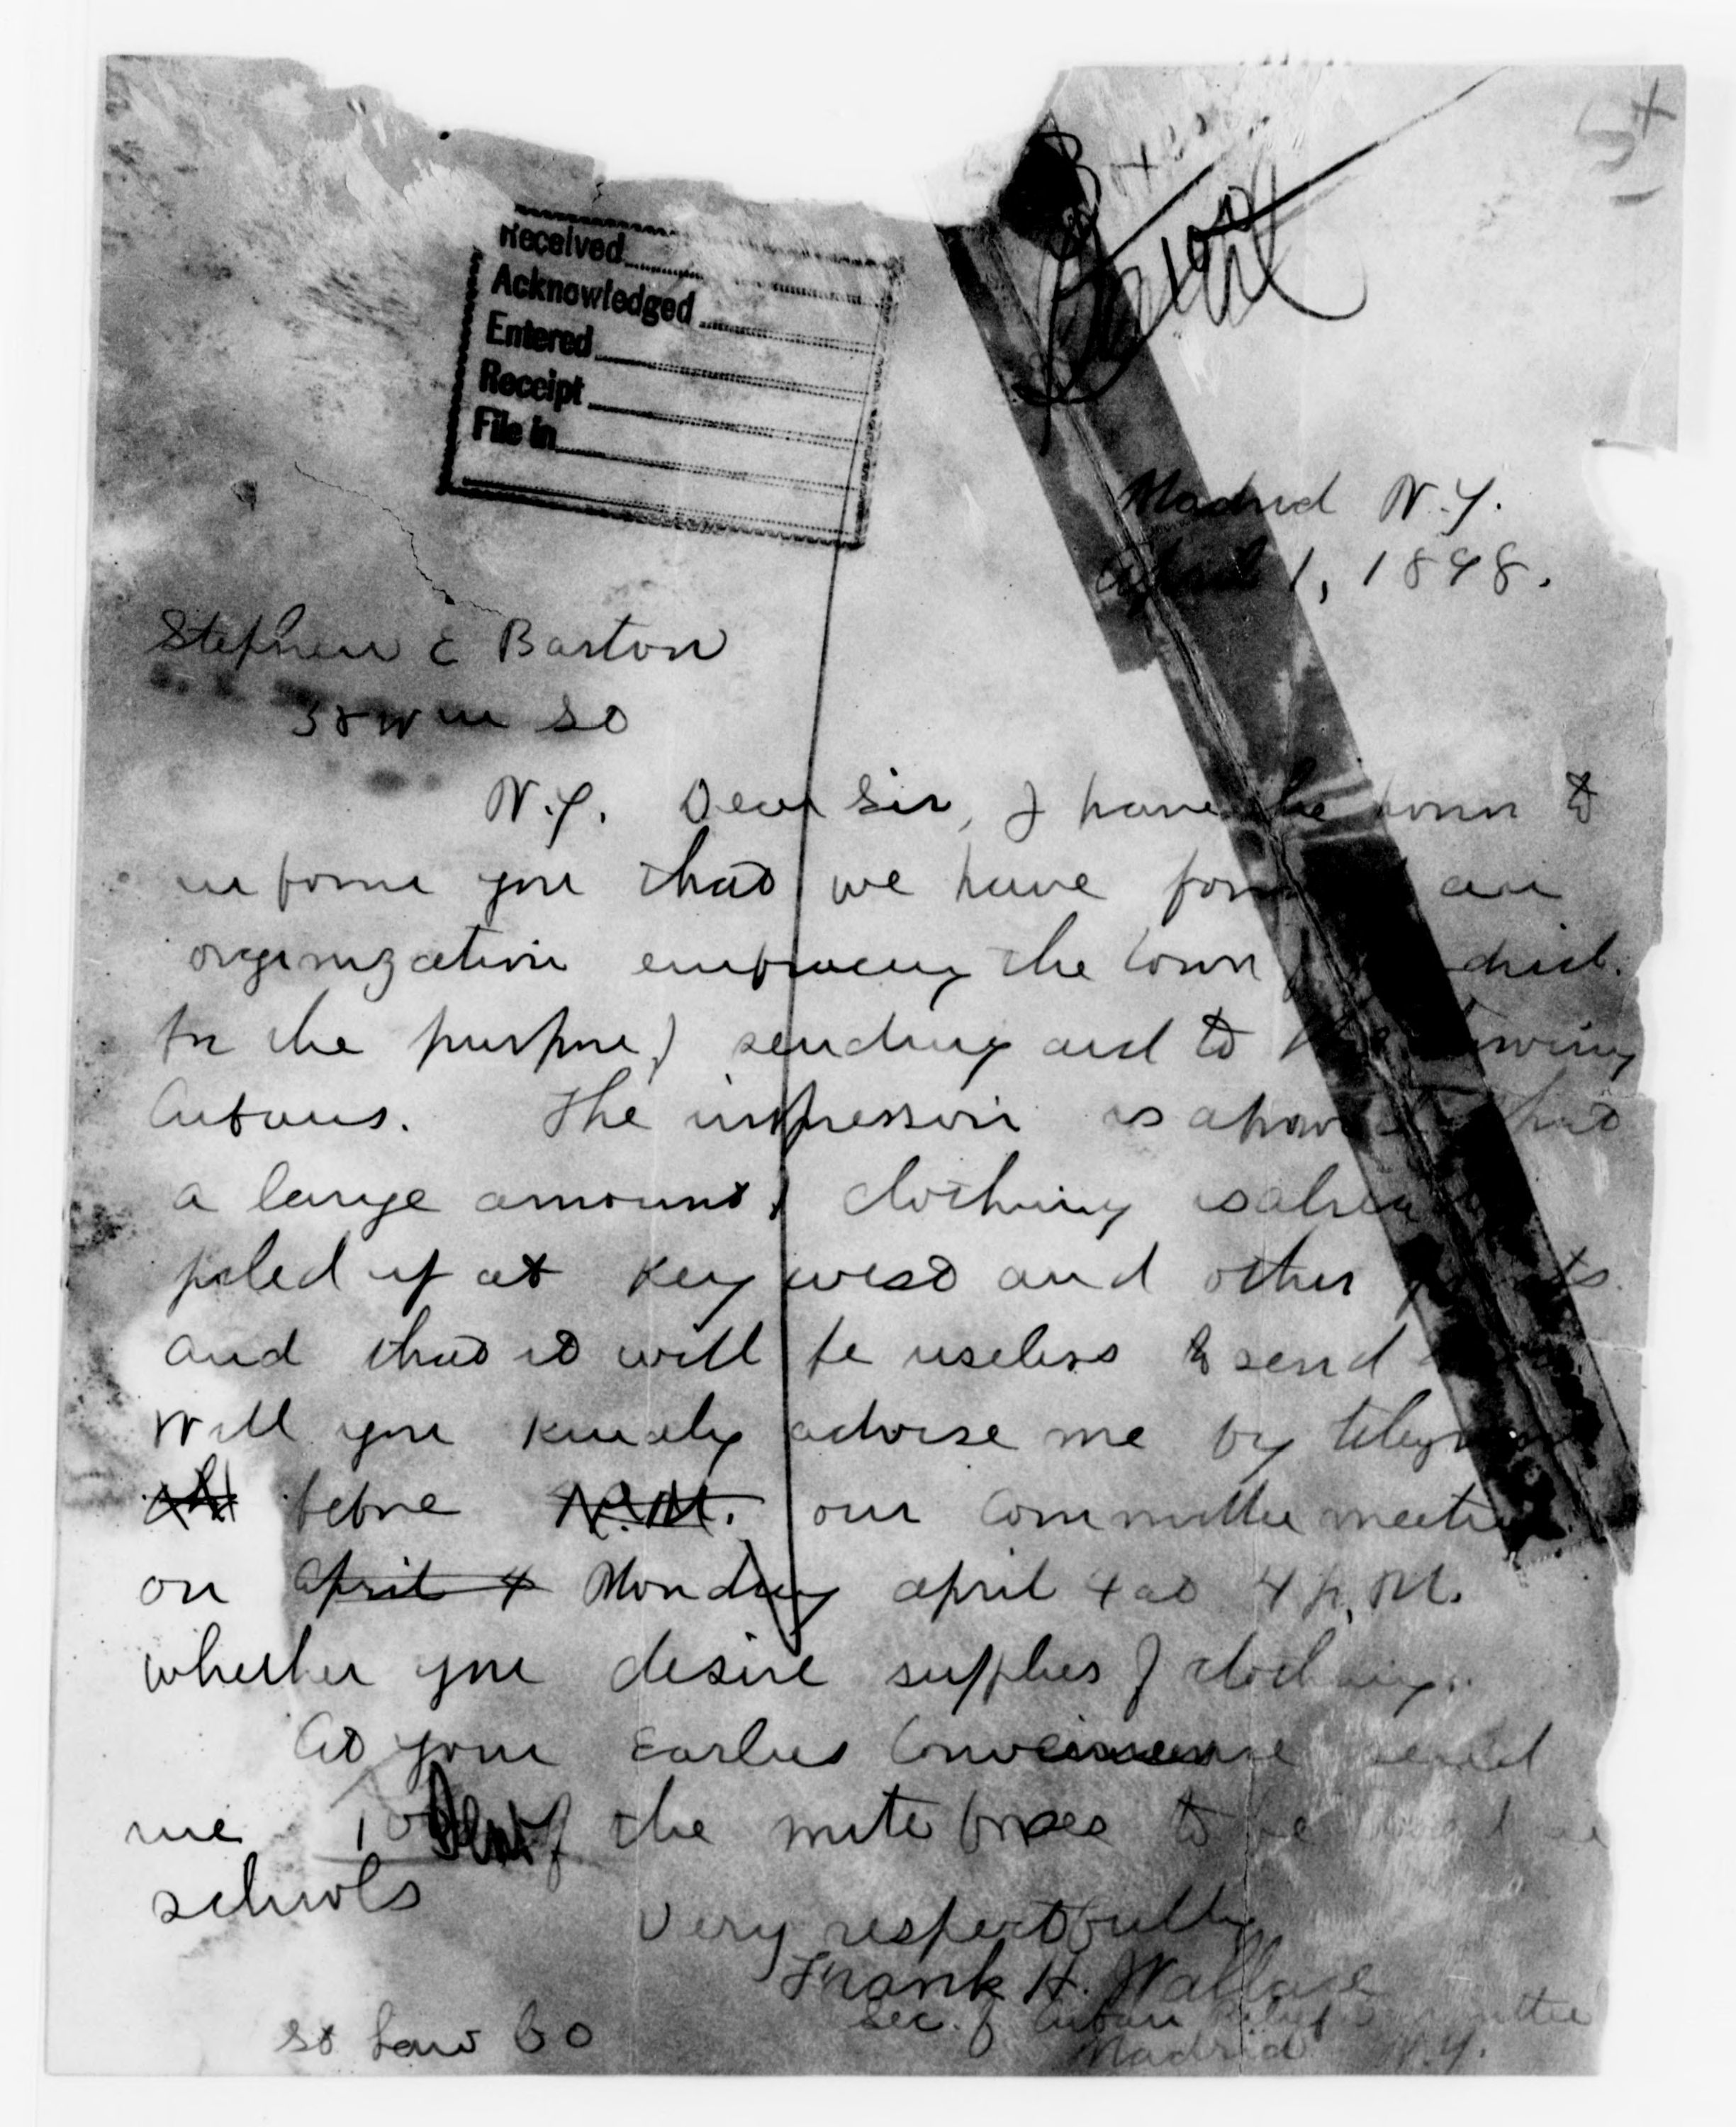 Received
Acknowledged
Entered
Receipt
File in
Madrid N.Y.
April 1, 1898.
Stephen E Barton
58 Wm St
N.Y. Dear Sir, I have the honor to
inform you that we have formed an
organization embracing the town of Madrid.
for the purpose of sending aid to the starving
Cubans. The impression is abroad that
a large amount of clothing is already
piled up at Key West and other points
and that it will be useless to send
Will you kindly advise me by telegram
before N.M. our committee meeting
on april 4 Monday april 4 at 4 p. M.
whether you desire supplies of clothing.
At your earlies convenience send
me 10 of the mite boxes to be used in
schools
Very respectfully
Frank H. Wallace
Sec. of Cuban Relief Committee
Madrid N.Y.
St Law Co